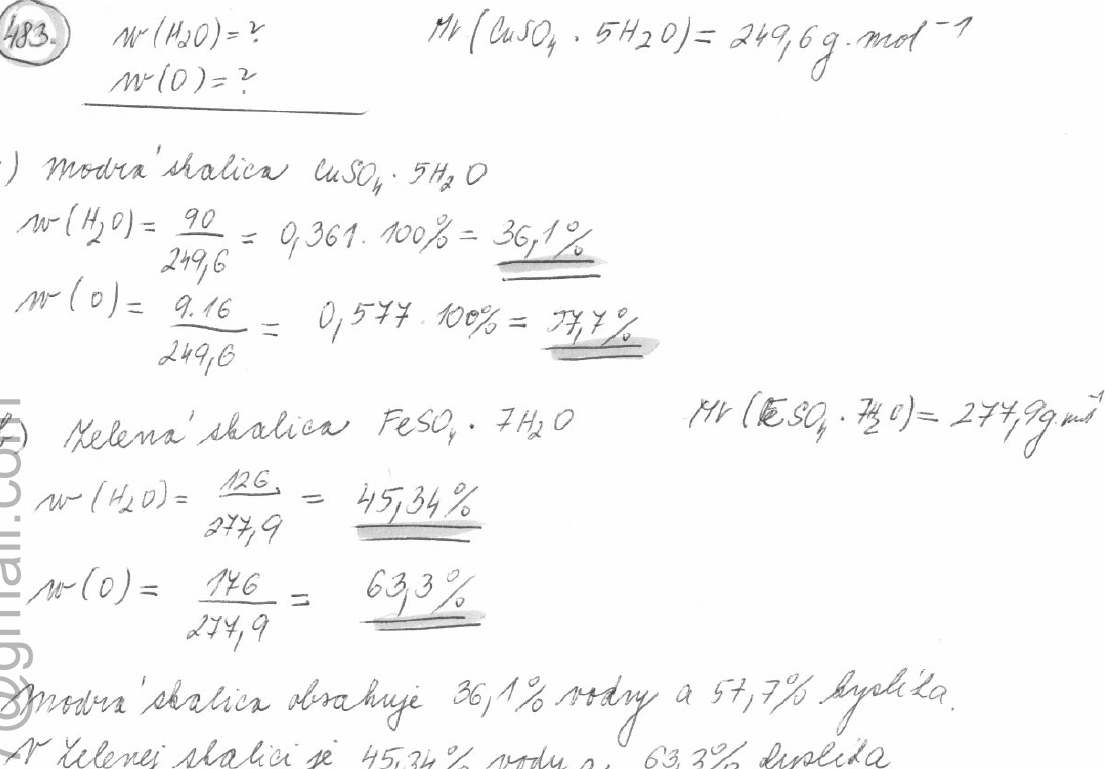 483. w(H₂O)=? Mr(CuSO₄ · 5H₂O)= 249,6g·mol⁻¹
w(O)=?
) Modrá skalica CuSO₄ · 5H₂O
w(H₂O)= 90/249,6 = 0,361. 100%= 36,1%
w(O)= 9.16/249,6 = 0,577. 100%= 57,7%
b) Zelená skalica FeSO₄ · 7H₂O Mr(FeSO₄ · 7H₂O)= 277,9g·mol⁻¹
w(H₂O)= 126/277,9 = 45,34%
w(O)= 176/277,9 = 63,3%
Modrá skalica obsahuje 36,1% vody a 57,7% kyslíka.
V Zelenej skalici je 45,34% vody a 63,3% kyslíka
@gmail.com